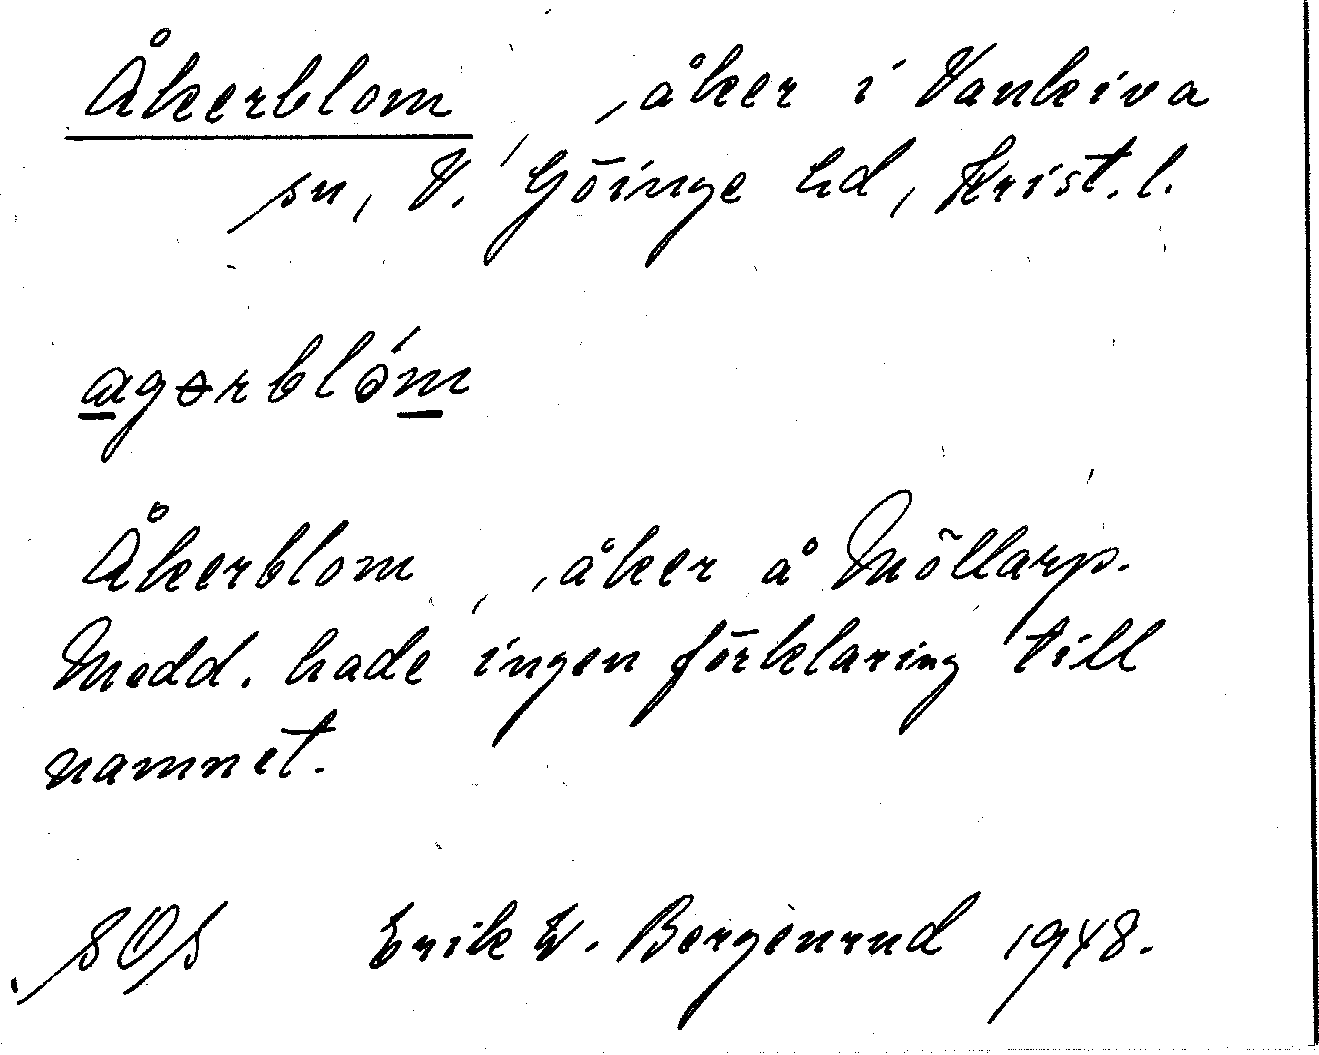 Åkerblom, åker i Vankiva
sn, V. Göinge hd, Krist. l.
agərblóm
Åkerblom, åker å Möllarp.
Medd. hade ingen förklaring till
namnet.
SOS Erik W. Bergenrud 1948.